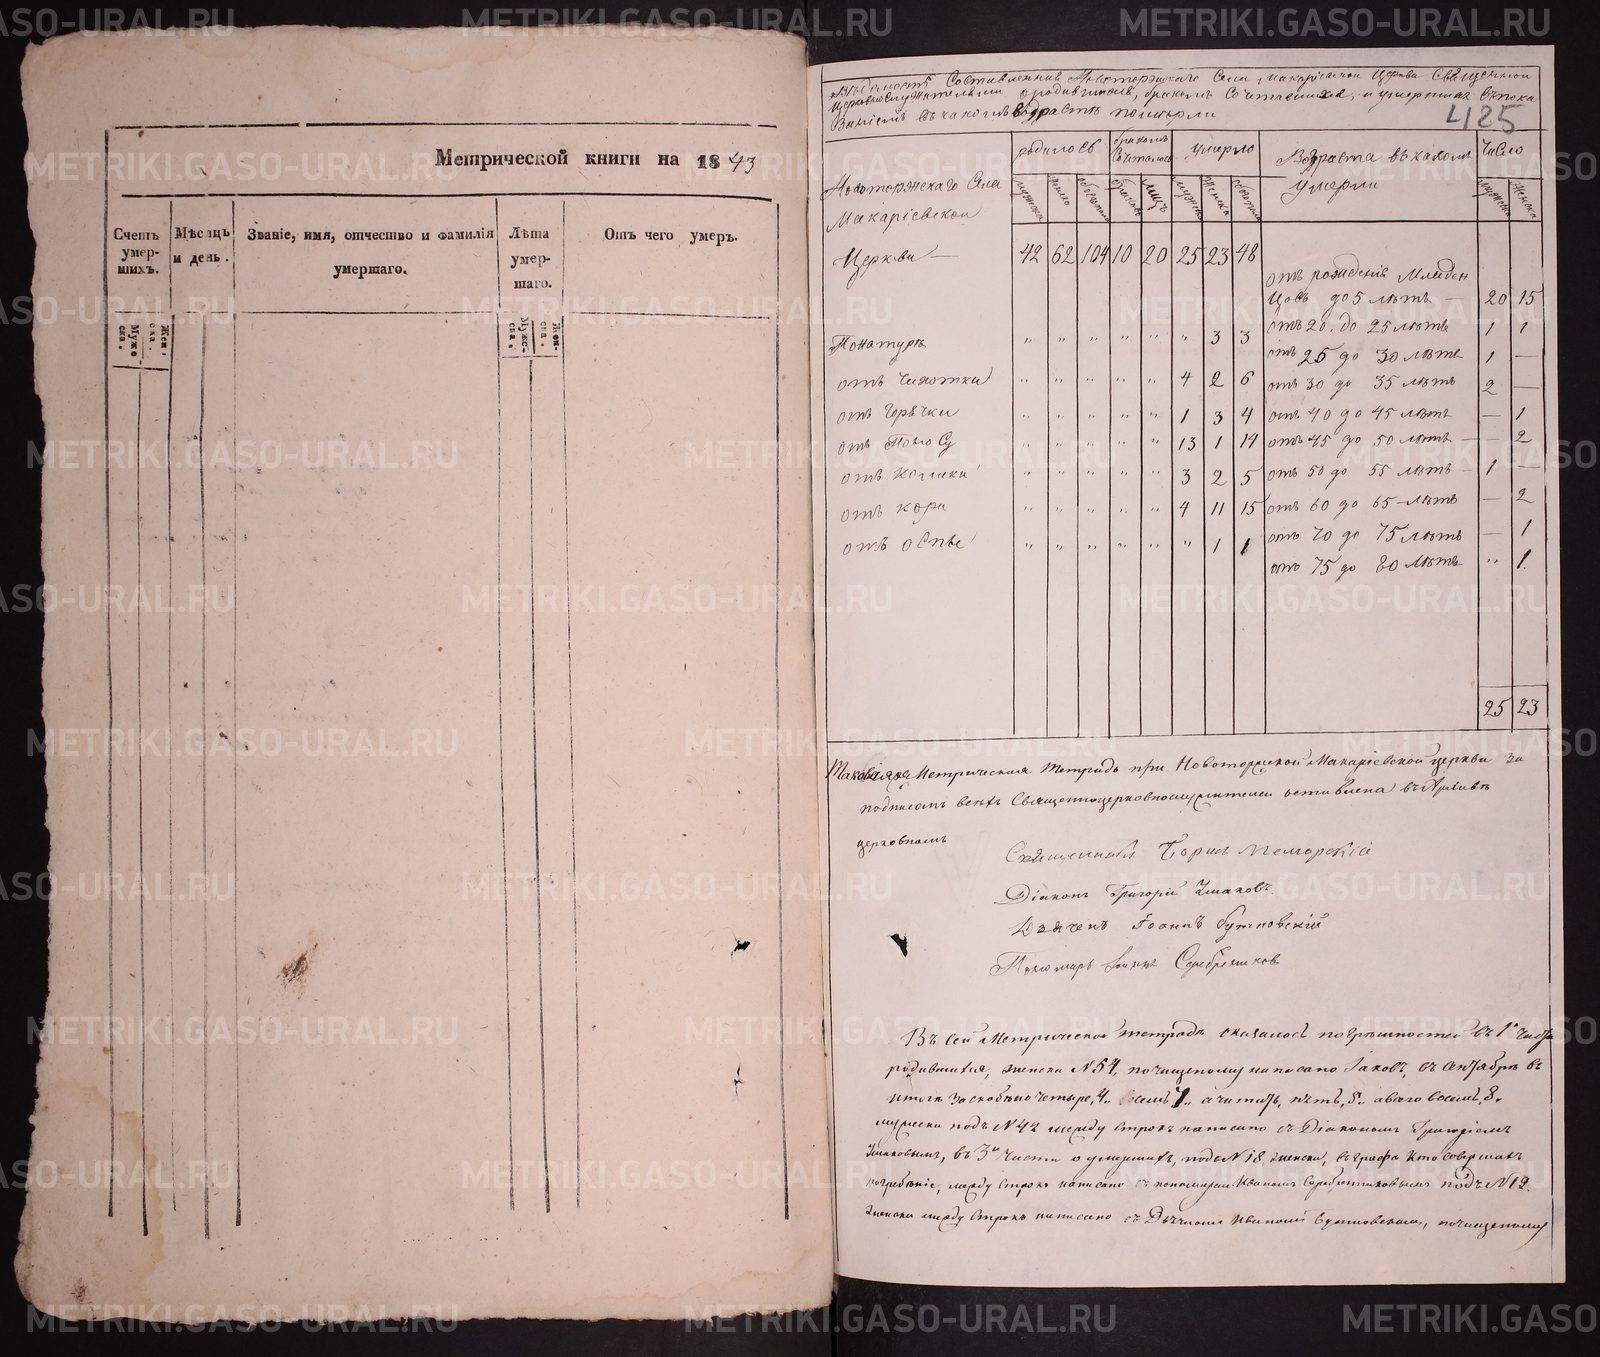 Метрической книги на 1843
Счетъ умер-шихъ.
Мѣсяцъ и день.
Званіе, имя, отчество и фамилія умершаго.
Лѣта умер-шаго.
Отъ чего умеръ.
Муже ска.
Жен-ска.
Муже-ска.
Жен-ска.
425
Составленная Новоторжскаго Села Макаріевской Церкви Священно
Церковнослужителями о родившихся, бракомъ Сочетавшихся, и умершихъ Съ пока
Заніемъ въ какомъ возрастѣ померли
Новоторжскаго Села Макаріевской
родилось
бракомъ Сочеталось
умерло
Возраста въ какомъ умерли
Число
Церкви — 42 62 104 10 20 25 23 48
отъ рожденія Младен
цовъ до 5 лѣтъ — 20 15
отъ 20. до 25 лѣтъ 1 1
По натурѣ " " " " " " 3 3
отъ 25 до 30 лѣтъ 1 —
отъ Чахотки " " " " " 4 2 6
отъ 30 до 35 лѣтъ 2 —
отъ Горячки " " " " " 1 3 4
отъ 40 до 45 лѣтъ — 1
отъ Поносу " " " " " 13 1 14
отъ 45 до 50 лѣтъ — 2
отъ Колики " " " " " 3 2 5
отъ 50 до 55 лѣтъ — 1 —
отъ Кори " " " " " 4 11 15
отъ 60 до 65 лѣтъ — 2
отъ оспы " " " " " " 1 1
отъ 70 до 75 лѣтъ — 1
отъ 75 до 80 лѣтъ " 1.
25 23
Таковая же Метрическая тетрадь при Новоторжской Макаріевской церкви за
подписомъ всѣхъ Священноцерковнослужителей оставлена въ Архивѣ
церковномъ
Священникъ Борисъ
Діаконъ Григорій Ушаковъ
Дьячекъ Іоаннъ Бутковскій
Пономарь Іоаннъ Серебренниковъ
Въ сей Метрической тетради оказалось погрѣшностей въ 1й части
родившихся, женска N 54, по чищеному написано Іаковъ, въ Сентябрѣ въ
итогѣ за скобкою четыре, 4., а читать, пять, 5., а всего восемь, 8.,
мужеска подъ N 42 между строкъ написано съ Діакономъ Григоріемъ
Ушаковымъ, въ 3й части о умершихъ, подъ N 18, женска, въ графѣ Кто совершалъ
погребеніе, между строкъ написано съ пономаремъ Иваномъ Серебренниковымъ подъ N 19.
женска между строкъ написано съ Дьячкомъ Иваномъ Бутковскимъ, по чищеному
METRIKI.GASO-URAL.RU